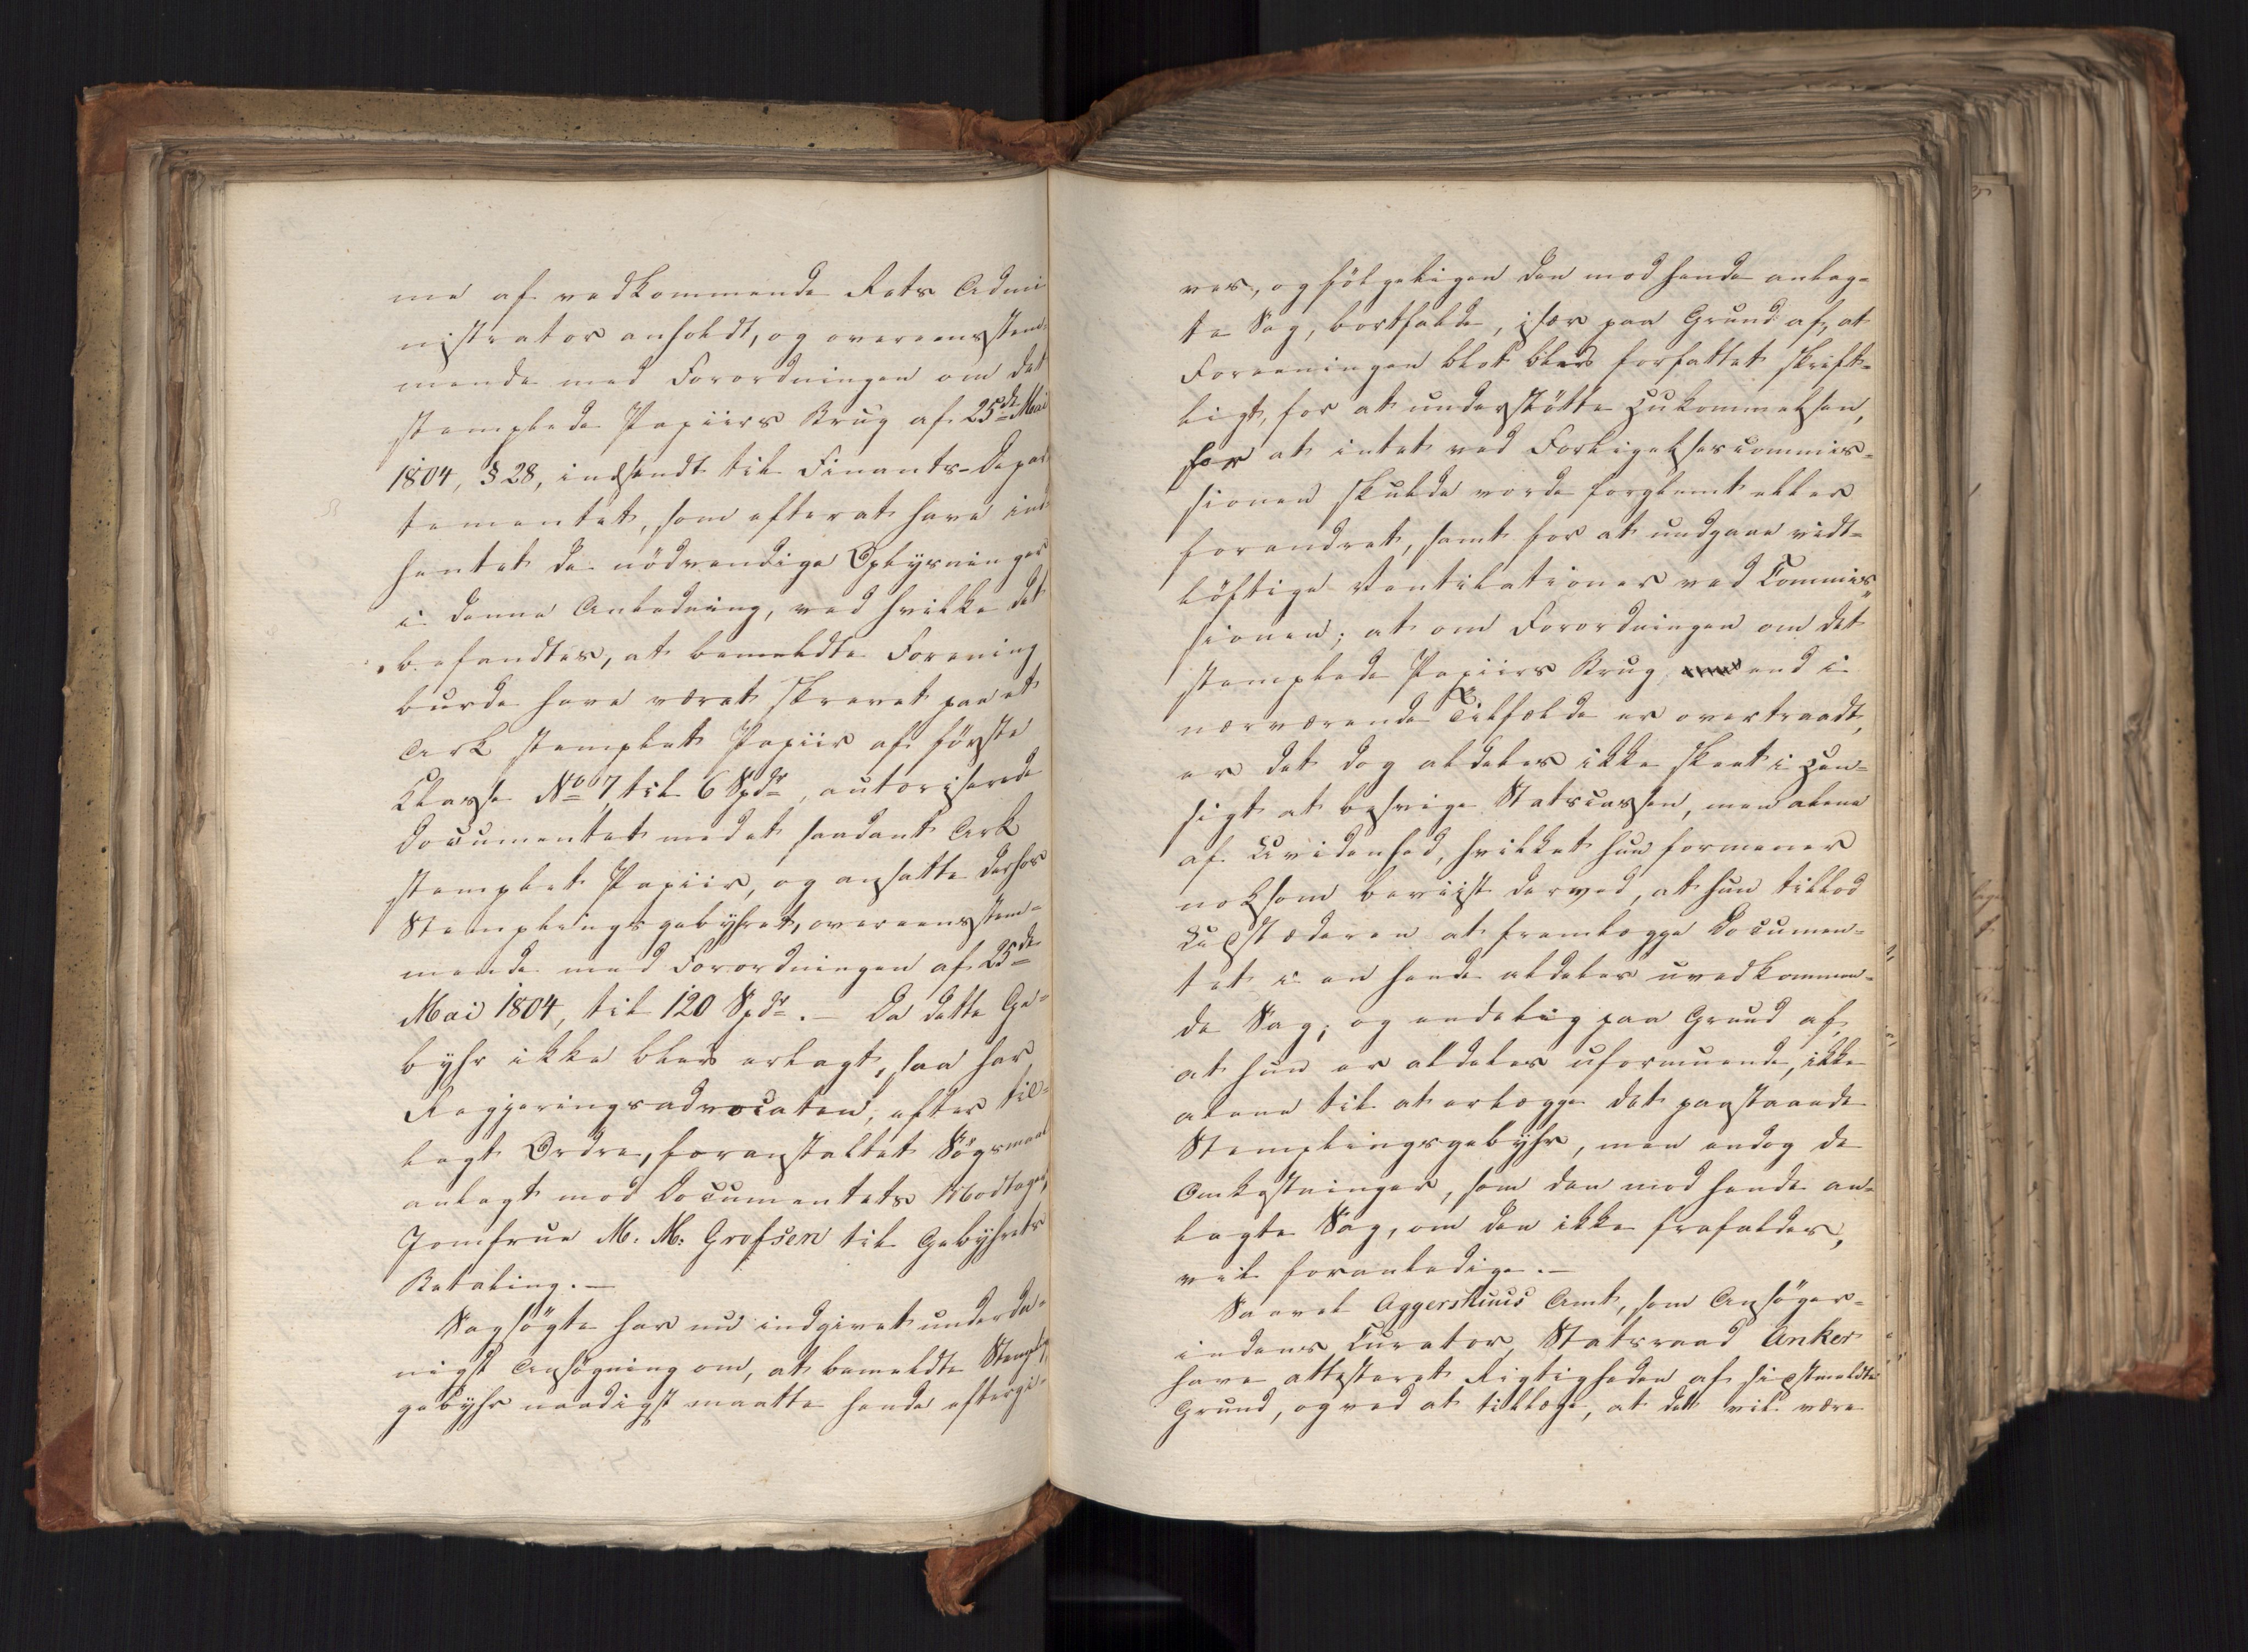 me af vedkommende Rets Admi
nistrator anholdt, og overeensstem
mende med Forordningen om det
stemplede Papiirs Brug af 25de Mai
1804, § 28, indsendt til Finants-Depar
tementet, som efterat have ind
hentet de nödvendige Oplysninger
i denne Anledning, ved hvilke det
befandtes, at bemeldte Forening
burde have været skrevet paa et
Ark stemplet Papiir af förste
Klasse No 7, til 6 Spdr, autoriserede
Documentet med et saadant Ark
stemplet Papiir, og ansatte derhos
Stemplingsgebyhret, overeensstem=
mende med Forordningen af 25de
Mai 1804, til 120 Spdr. — Da dette Ge=
byhr ikke blev erlagt, saa har
Regjeringsadvocaten, efter til=
lagt Ordre, foranstaltet Sögsmaal
anlagt mod Documentets Modtager,
Jomfrue M. M. Grofsen til Gebyhrets
Betaling. —
Sagsögte har nu indgivet underda=
nigst Ansögning om, at bemeldte Stempel
gebyhr naadigst maatte hende eftergi=
ves, og fölgeligen den mod hende anlag=
te Sag, bortfalde, især paa Grund af, at
Foreeningen blot blev forfattet skrift=
ligt, for at understötte Hukommelsen,
for at intet ved Forligelsescommis=
sionen skulde vorde forglemt eller
forandret, samt for at undgaae vidt=
löftige Ventilationer ved Commis
sionen; at om Forordningen om det
stemplede Papiirs Brug, end i
nærværende Tilfælde er overtraadt,
er det dog aldeles ikke skeet i Hen=
sigt at besvige Statscassen, men alene
af Uvidenhed, hvilket hun formener
noksom beviist derved, at hun tillod
at fremlægge Documen=
tet i en hende aldeles uvedkommen=
de Sag; og endelig paa Grund af,
at hun er aldeles uformuende, ikke
alene til at erlægge det paastaaede
Stemplingsgebyhr, men endog de
Omkostninger, som den mod hende an=
lagte Sag, om den ikke frafaldes,
vil foranledige. —
Saavel Aggershuus Amt, som Ansöger=
indens Curator, Statsraad Anker
have attesteret Rigtigheden af sidstmeldte
Grund, og ved at tillægge, at det vil være